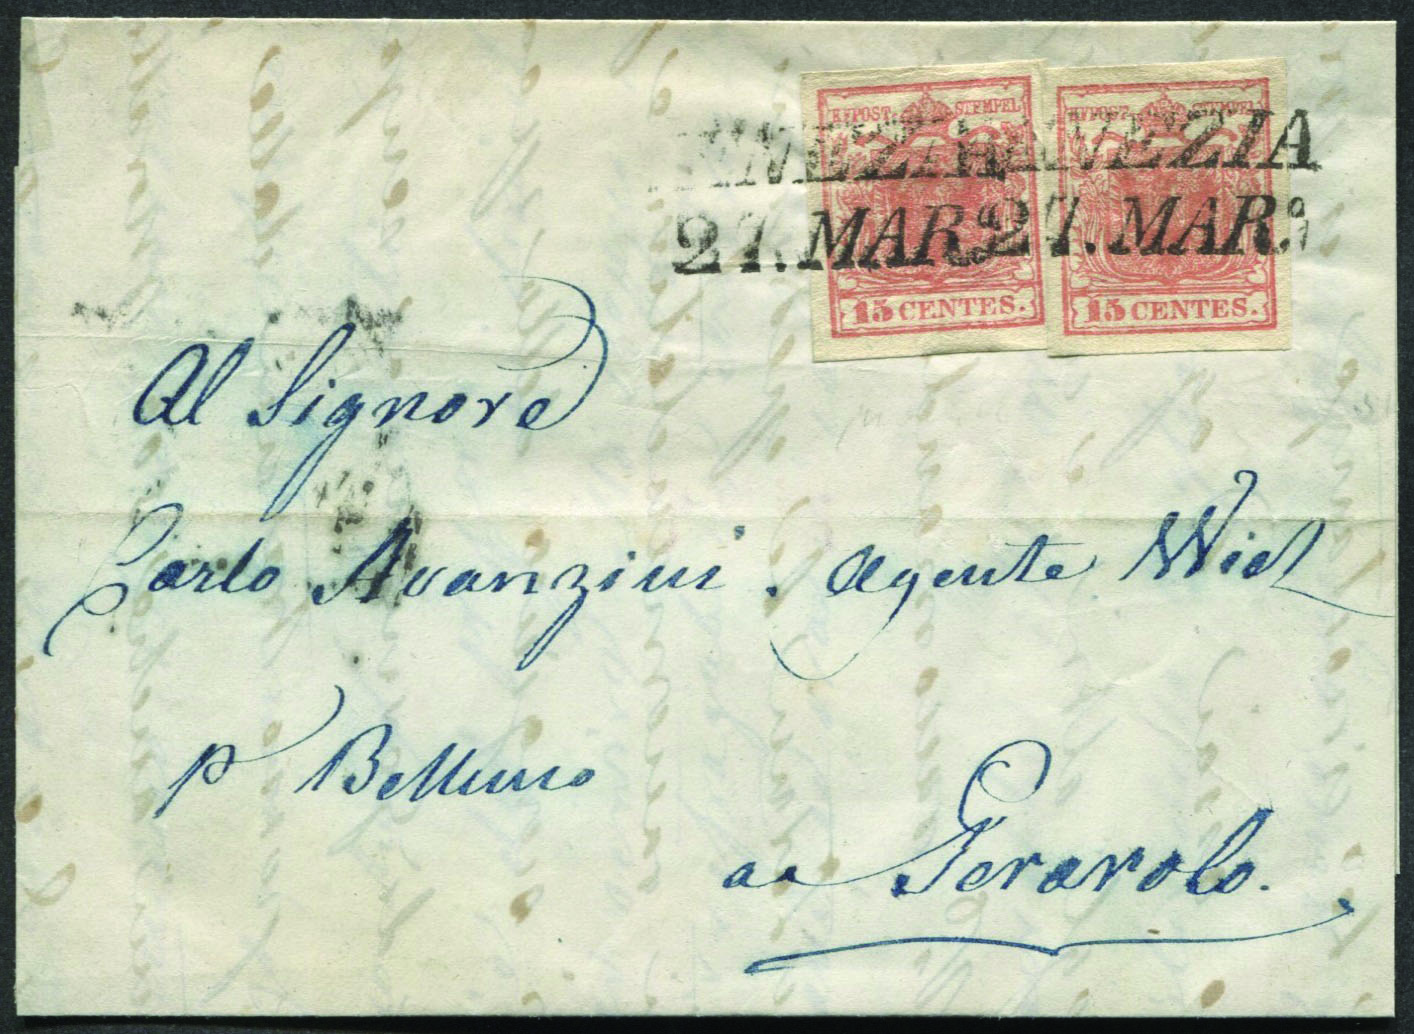 KKPOST STEMPEL KKPOST STEMPEL
VENEZIA VENEZIA
27. MAR. 27. MAR.
15 CENTES. 15 CENTES.
Al Signore
Carlo Avanzini . Agente Wiel
p Belluno
a Perarolo.